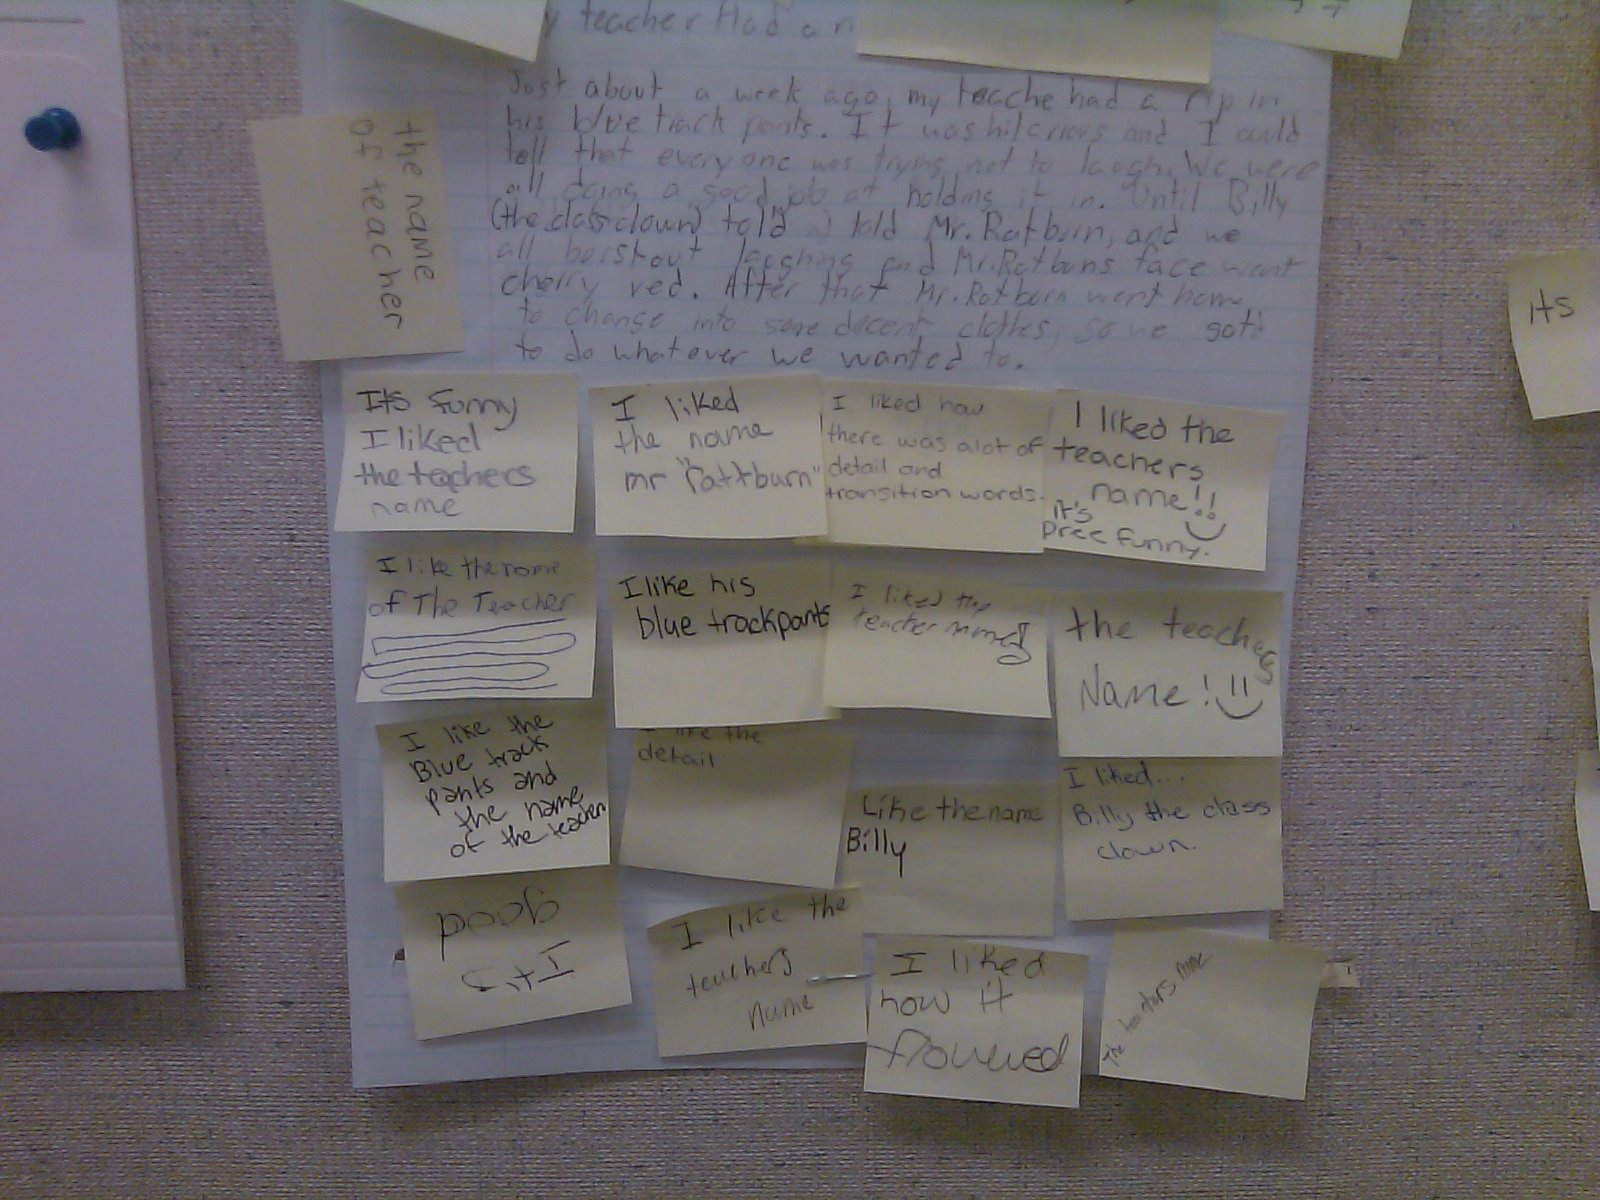 y teacher Had a r
Just about a week ago, my teache had a rip in
his blue track pants. It was hilarious and I could
tell that everyone was trying not to laugh. We were
all doing a good job at holding it in. Until Billy
(the class clown) told told Mr. Ratburn, and we
all burst out laughing and Mr. Ratbuns face want
cherry red. After that Mr. Ratburn went home
to change into some decent clothes, so we got
to do whatever we wanted to.
the name
of teacher
its
Its funny
I liked
the teachers
name
I liked
the name
mr "rattburn"
I liked how
there was alot of
detail and
transition words.
I liked the
teachers
name!!
it's
pree funny.
I like the name
of The Teacher
I like his
blue trackpants
I liked the
teacher name
the teachers
Name!
I like the
Blue track
pants and
the name
of the teacher
I like the
detail
Like the name
Billy
I liked...
Billy the class
clown.
good
I like the
teachers
name
I liked
how it
flowed
The name